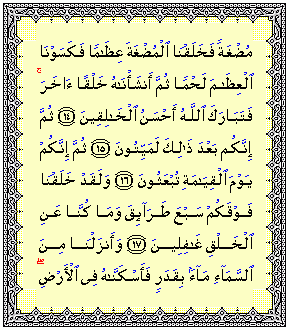 مُضْغَةً فَخَلَقْنَا الْمُضْغَةَ عِظَٰمًا فَكَسَوْنَا
الْعِظَٰمَ لَحْمًا ثُمَّ أَنشَأْنَٰهُ خَلْقًا ءَاخَرَ
فَتَبَارَكَ اللَّهُ أَحْسَنُ الْخَٰلِقِينَ ١٤ ثُمَّ
إِنَّكُم بَعْدَ ذَٰلِكَ لَمَيِّتُونَ ١٥ ثُمَّ إِنَّكُمْ
يَوْمَ الْقِيَٰمَةِ تُبْعَثُونَ ١٦ وَلَقَدْ خَلَقْنَا
فَوْقَكُمْ سَبْعَ طَرَآئِقَ وَمَا كُنَّا عَنِ
الْخَلْقِ غَٰفِلِينَ ١٧ وَأَنزَلْنَا مِنَ
السَّمَآءِ مَآءًۢ بِقَدَرٍ فَأَسْكَنَّٰهُ فِى الْأَرْضِ